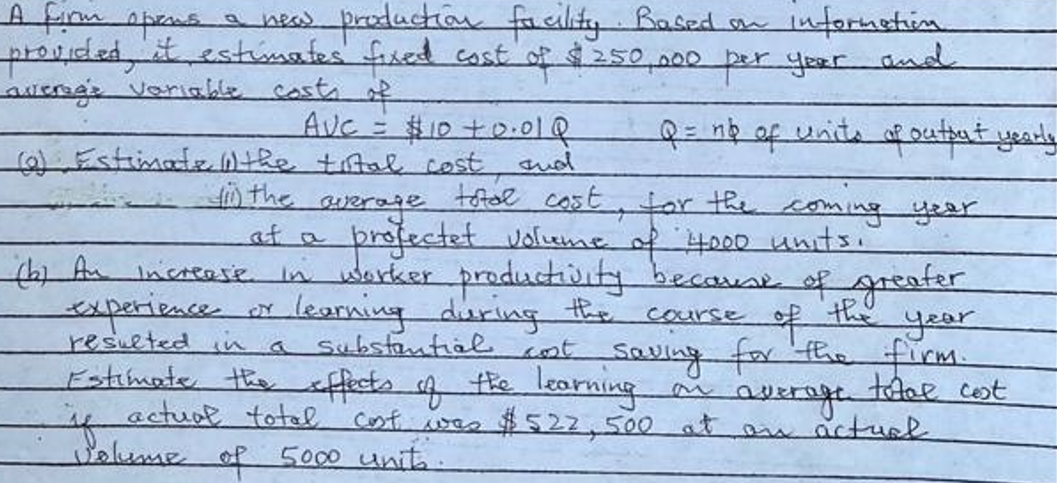 A firm opens a new production facility. Based on information
provided, it estimates fixed cost of $250,000 per year and
average variable costs of
AVC = $10 + 0.01Q Q = nb of units of output yearly
(a) Estimate (i) the total cost, and
(ii) the average total cost, for the coming year
at a projectet volume of 4000 units.
(b) An increase in worker productivity because of greater
experience or learning during the course of the year
resulted in a substantial cost saving for the firm.
Estimate the effects of the learning on average total cost
if actual total cost was $522,500 at an actual
volume of 5000 units.